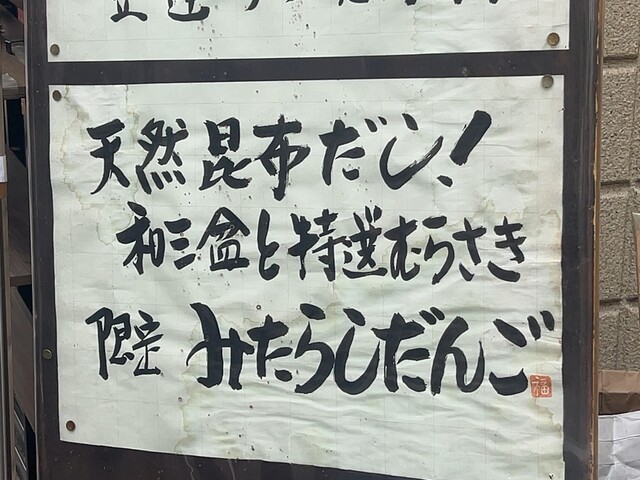 天然昆布だし!
和三盆と特選むらさき
限定 みたらしだんご
福